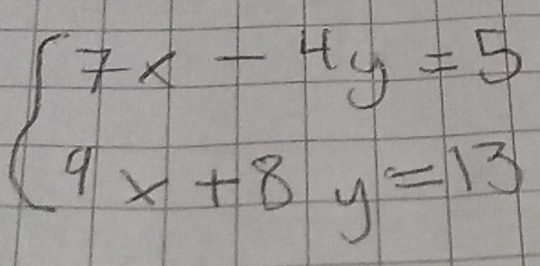 7x - 4y = 5
9x + 8y = 13